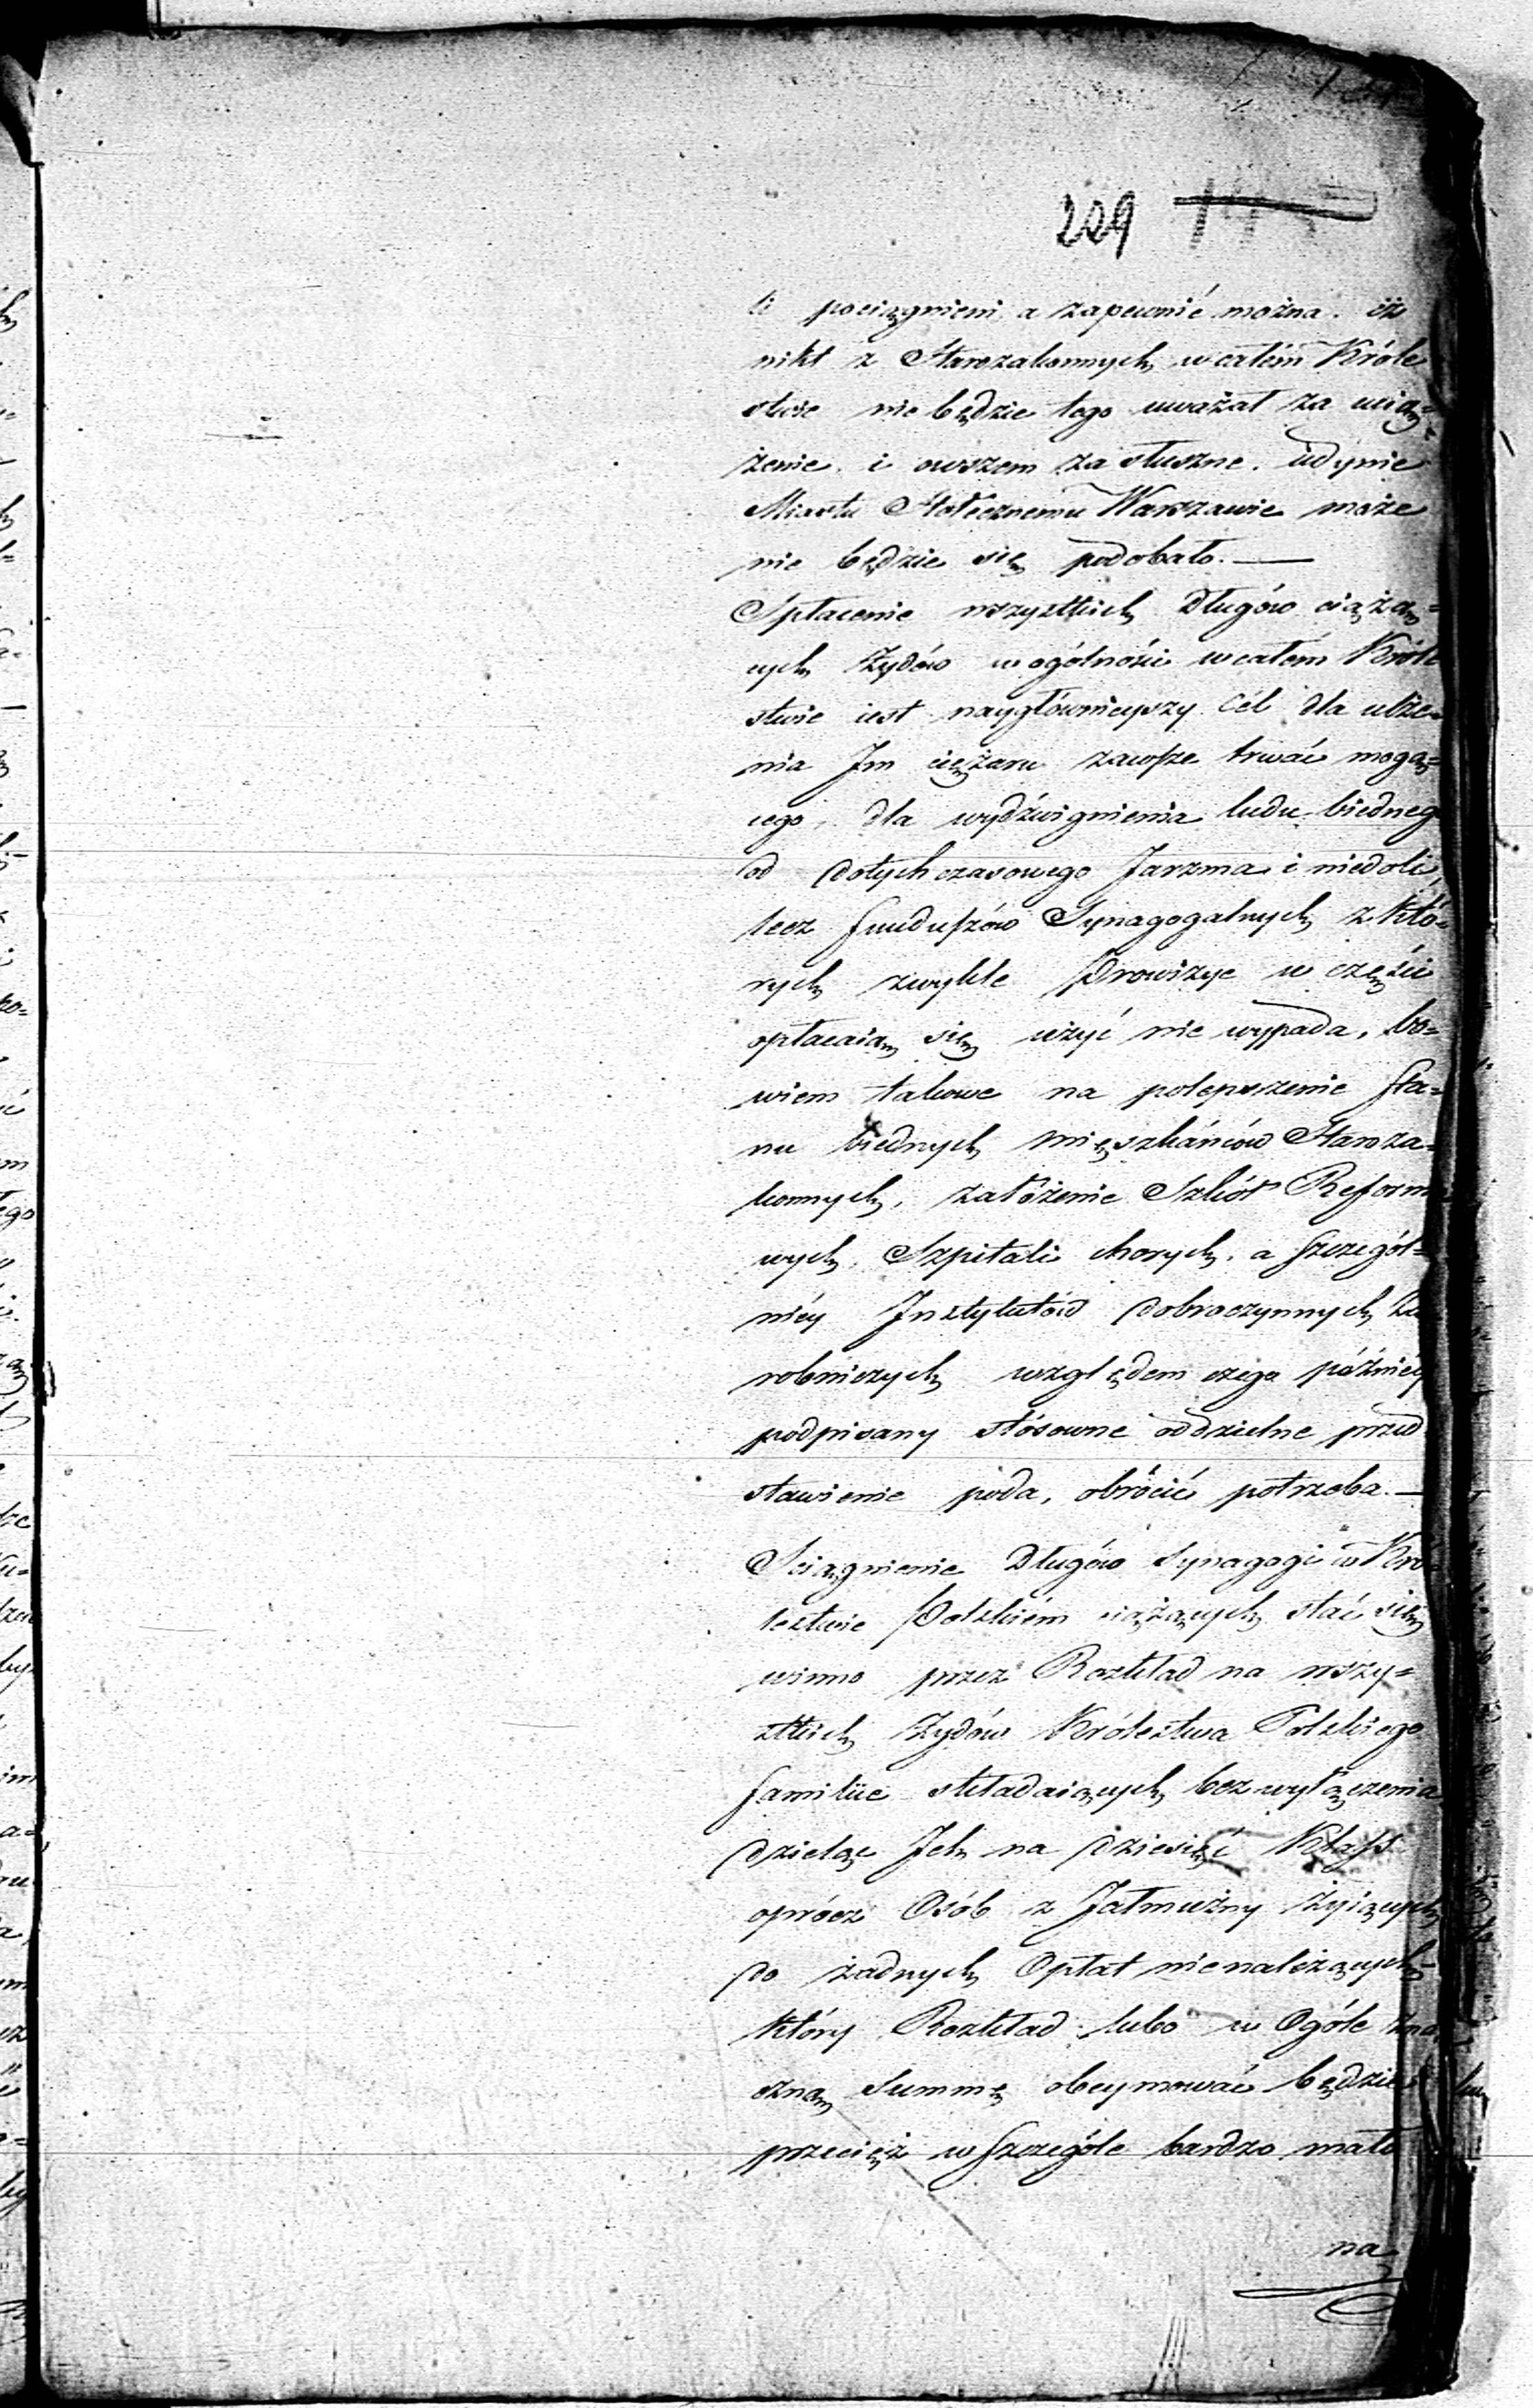 229
li pociągnieni, a zapewnić można. iż
nikt z Starozakonnych w całém Króle
stwie nie będzie tego uważał za ucią=
żenie. i owszem za słuszne. iedynie
Miastu Stołecznemu Warszawie może
nie będzie się podobało. —
Spłacenie wszystkich Długów ciążą=
cych Żydów w ogólności w całém Króle
stwie iest naygłównieyszy cél dla ulże=
nia Im ciężaru zawsze trwać mogą=
cego, dla wydźwignienia ludu biedneg
od dotychczasowego Jarzma i niedoli,
lecz funduszów Synagogalnych z któ=
rych zwykle Prowizye w części
opłacaią się użyć nie wypada, bo=
wiem takowe na polepszenie sta=
nu biednych mięszkańców Staroza=
konnych, założenie Szkół Reform
wych, Szpitali chorych, a szczegól=
niéy Instytutów dobroczynnych Za
robniczych względem czego późniéy
podpisany stósowne oddzielne przed
stawienie poda, obrócić potrzeba. —
Sciągnienie Długów Synagogi w Kró
lestwie Polskiém ciążących stać się
winno przez Rozkład na wszy=
stkich Żydów Królestwa Polskiego
familiie składaiących bez wyłączenia
dzieląc Ich na dziesięć Klass
oprócz Osób z Jałmużny żyiących
do żadnych Opłat nienależących
który Rozkład lubo w Ogóle zna
czną Summę obeymować będzie
przecięż w szczególe bardzo mało
na